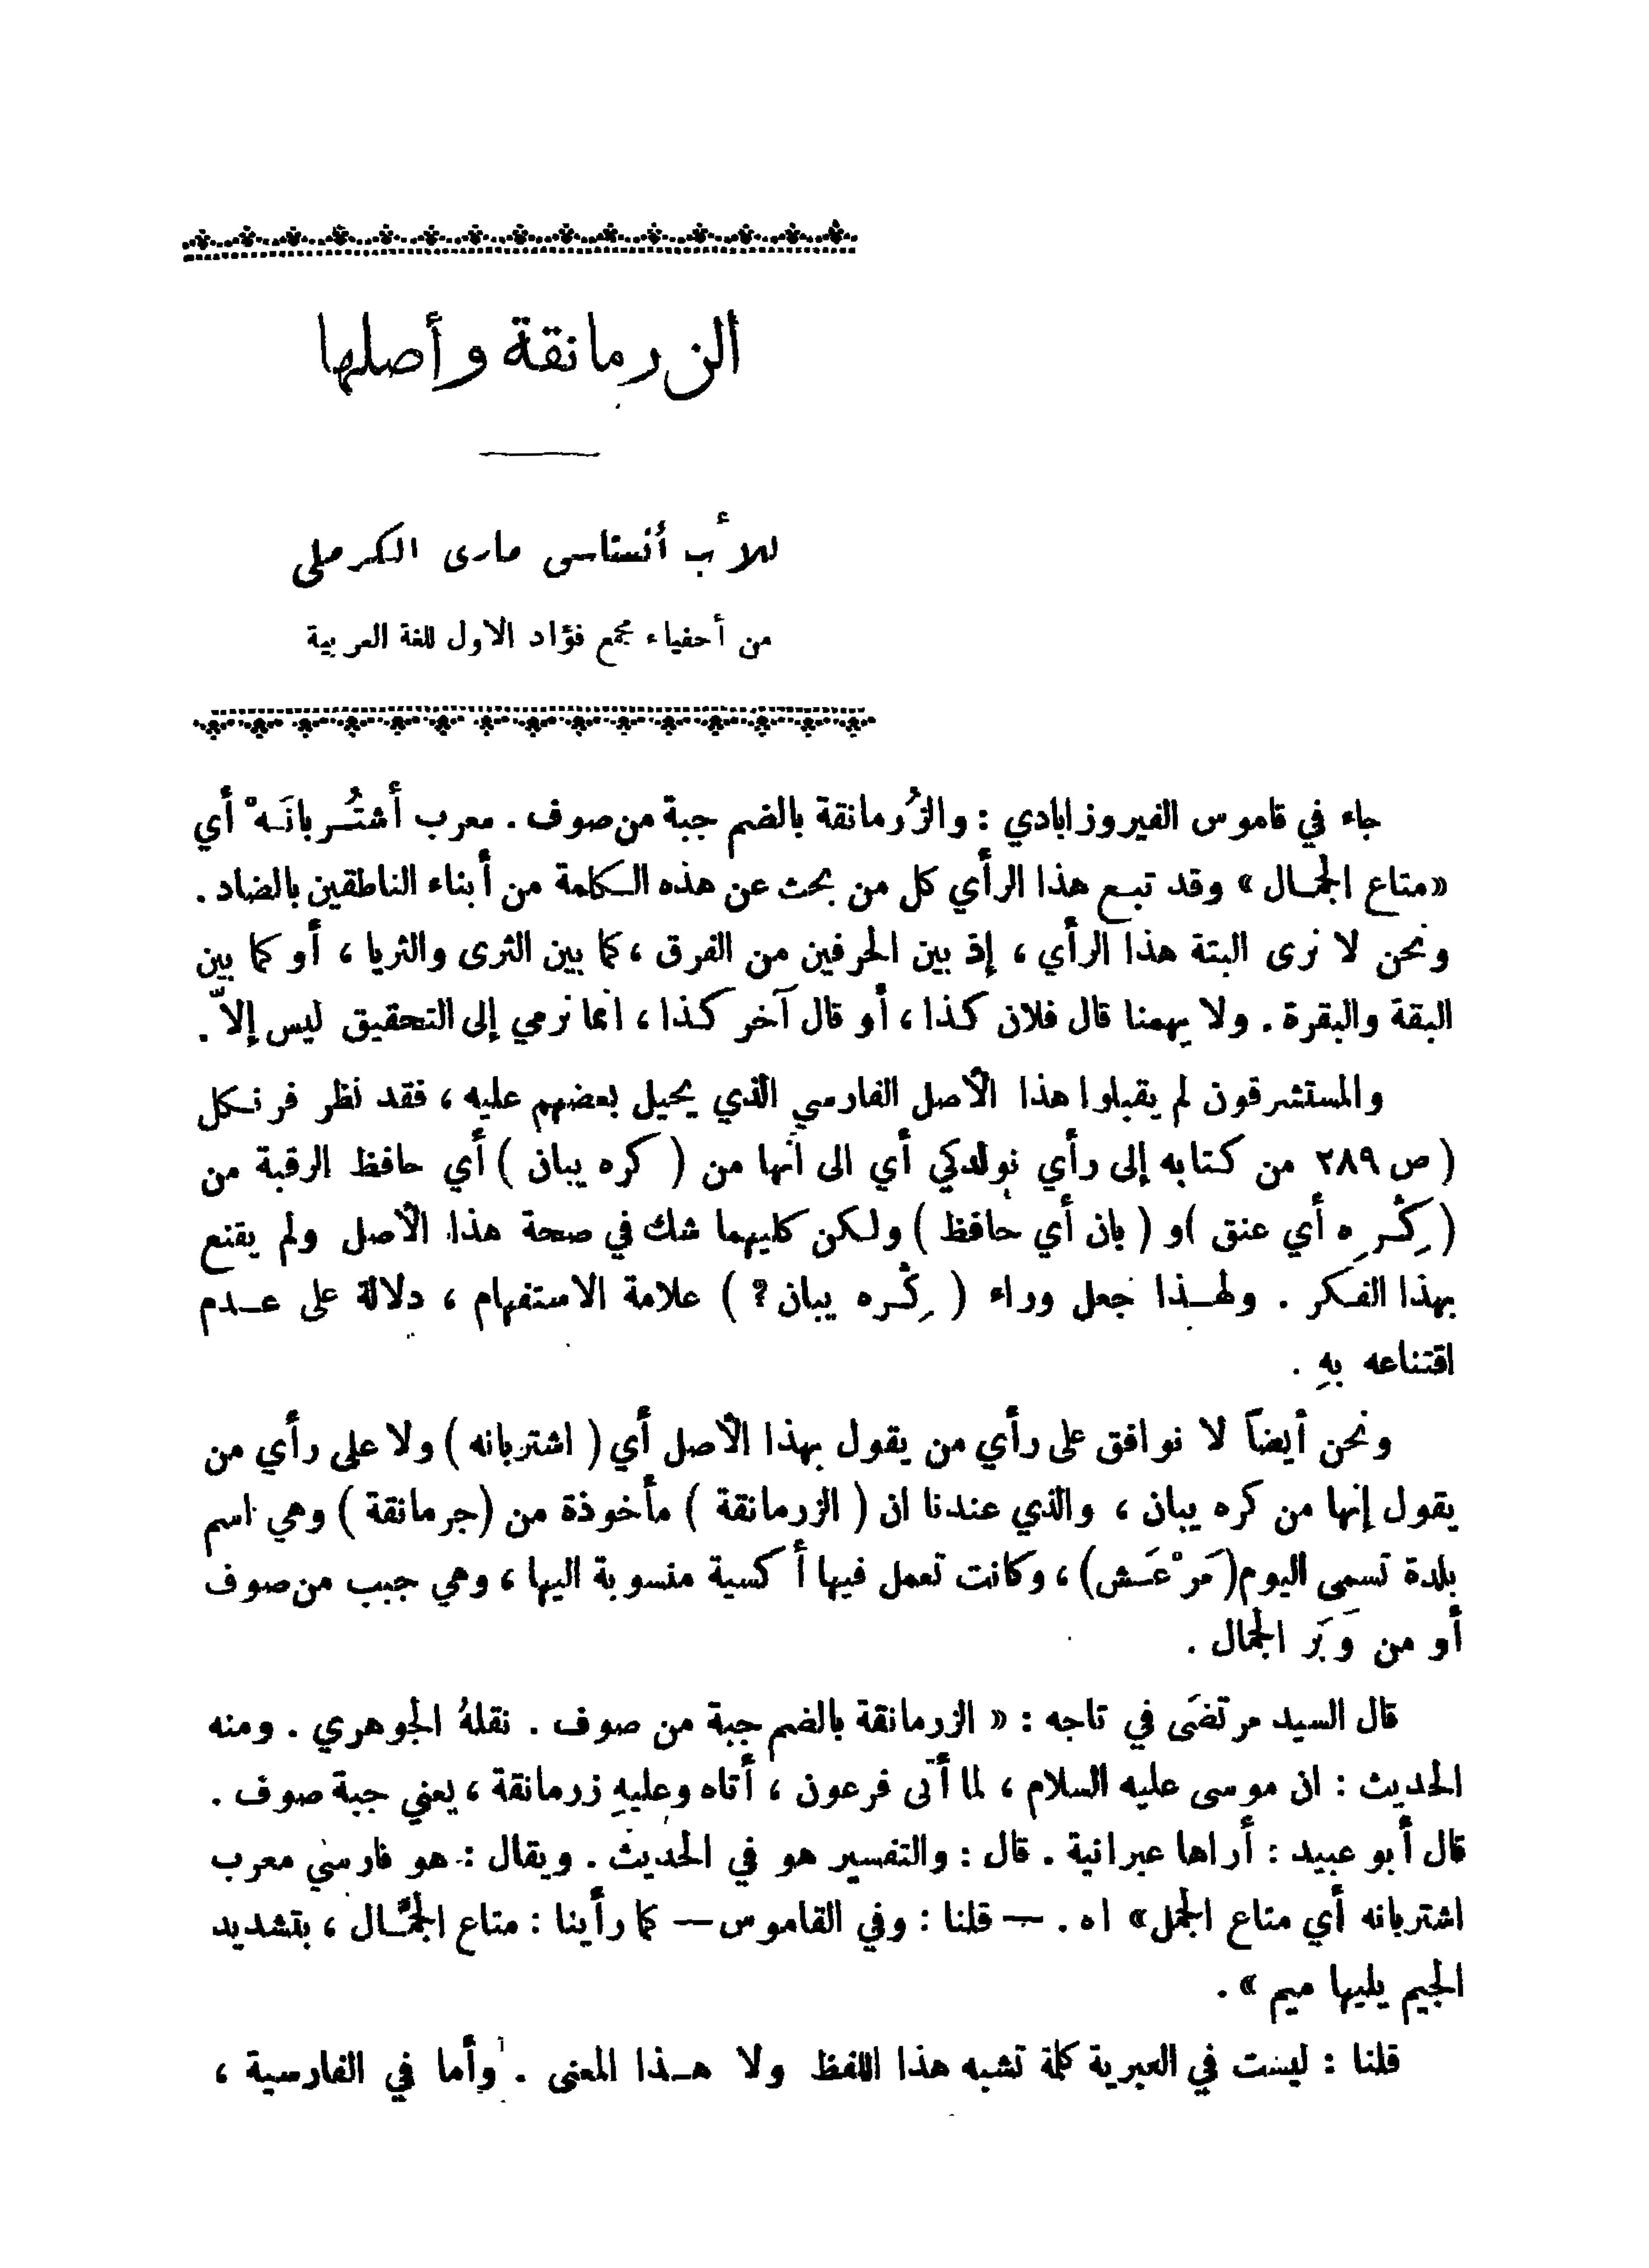 الزرمانقة وأصلها
للأب أنستاسى مارى الكرملى
من أحفياء مجمع فؤاد الاول للغة العربية
جاء في قاموس الفيروزابادي : والزُرمانقة بالضم جبة من صوف . معرب أشتُربانَهْ أي
«متاع الجمال » وقد تبع هذا الرأي كل من بحث عن هذه الكلمة من أبناء الناطقين بالضاد .
ونحن لا نرى البتة هذا الرأي ، إذ بين الحرفين من الفرق ، كما بين الثرى والثريا ، أو كما بين
البقة والبقرة . ولا يهمنا قال فلان كذا ، أو قال آخر كذا ، انما نرمي إلى التحقيق ليس إلاّ .
والمستشرقون لم يقبلوا هذا الأصل الفارسي الذي يحيل بعضهم عليه ، فقد نظر فرنكل
( ص ٢٨٩ من كتابه إلى رأي نولدكي أي الى أنها من ( كره يبان ) أي حافظ الرقبة من
( كِرِه أي عنق ) و ( بان أي حافظ ) ولكن كليهما شك في صحة هذا الأصل ولم يقنع
بهذا الفكر . ولهذا جعل وراء ( كِره يبان ? ) علامة الاستفهام ، دلالة على عدم
اقتناعه بهِ .
ونحن أيضاً لا نوافق على رأي من يقول بهذا الأصل أي ( اشتربانه ) ولا على رأي من
يقول إنها من كره يبان ، والذي عندنا ان ( الزرمانقة ) مأخوذة من (جرمانقة ) وهي اسم
بلدة تسمى اليوم (مَرْعَش) ، وكانت تعمل فيها أكسية منسوبة اليها ، وهي جبب من صوف
أو من وَبَر الجمال .
قال السيد مرتضَى في تاجه : « الزرمانقة بالضم جبة من صوف . نقلهُ الجوهري . ومنه
الحديث : ان موسى عليه السلام ، لما أتى فرعون ، أتاه وعليهِ زرمانقة ، يعني جبة صوف .
قال أبو عبيد : أراها عبرانية . قال : والتفسير هو في الحديث . ويقال : هو فارسي معرب
اشتربانه أي متاع الجمل» اه . — قلنا : وفي القاموس — كما رأينا : متاع الجمَّال ، بتشديد
الجيم يليها ميم » .
قلنا : ليست في العبرية كلمة تشبه هذا اللفظ ولا هذا المعنى . وأما في الفارسية ،